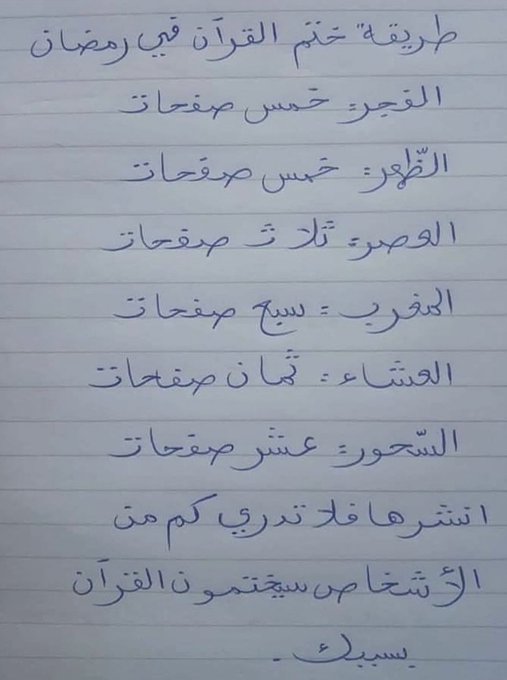 طريقة ختم القرآن في رمضان
الفجر: خمس صفحات
الظّهر: خمس صفحات
العصر: ثلاث صفحات
المغرب: سبع صفحات
العشاء: ثمان صفحات
السّحور: عشر صفحات
انشرها فلا تدري كم من
الأشخاص سيختمون القرآن
بسببك.